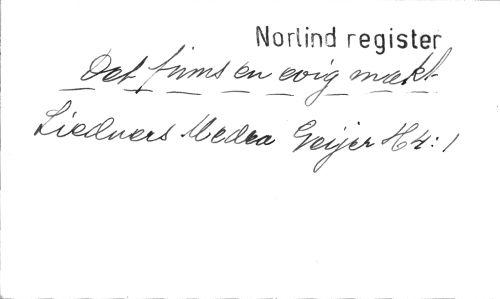 Norlind register
Det finns en evig makt
Liedners Medea Geijer H4:1